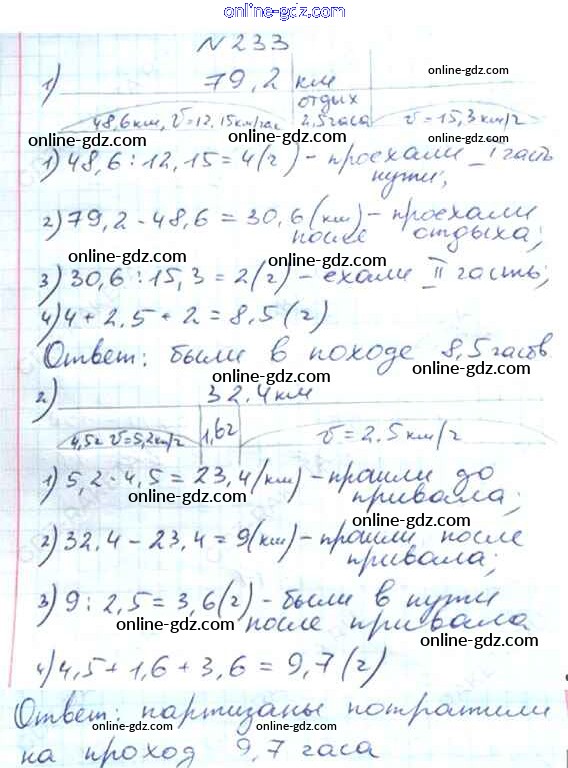 online-gdz.com
N 233
1) 79,2 км
online-gdz.com
отдых
48,6км, v=12,15км/час 2,5часа v=15,3км/г
online-gdz.com online-gdz.com
1) 48,6 : 12,15 = 4(г) - проехали I гасть
online-gdz.com
пути;
2) 79,2 - 48,6 = 30,6 (км) - проехали
online-gdz.com
после отдыха;
online-gdz.com
3) 30,6 : 15,3 = 2(г) - ехали II гасть;
online-gdz.com
4) 4 + 2,5 + 2 = 8,5 (г)
online-gdz.com
Ответ: были в походе 8,5 гасов
online-gdz.com
2) 32.4км
online-gdz.com
4,5г v=5,2км/г 1,6г v=2.5км/г
online-gdz.com
1) 5,2 · 4,5 = 23,4 (км) - прошли до
online-gdz.com
привала;
online-gdz.com
2) 32,4 - 23,4 = 9(км) - прошли после
online-gdz.com
привала;
3) 9 : 2,5 = 3,6(г) - были в пути
online-gdz.com
после привала
online-gdz.com
4) 4,5 + 1,6 + 3,6 = 9,7 (г)
online-gdz.com
Ответ: партизаны потратили
online-gdz.com
на проход 9,7 гаса
online-gdz.com